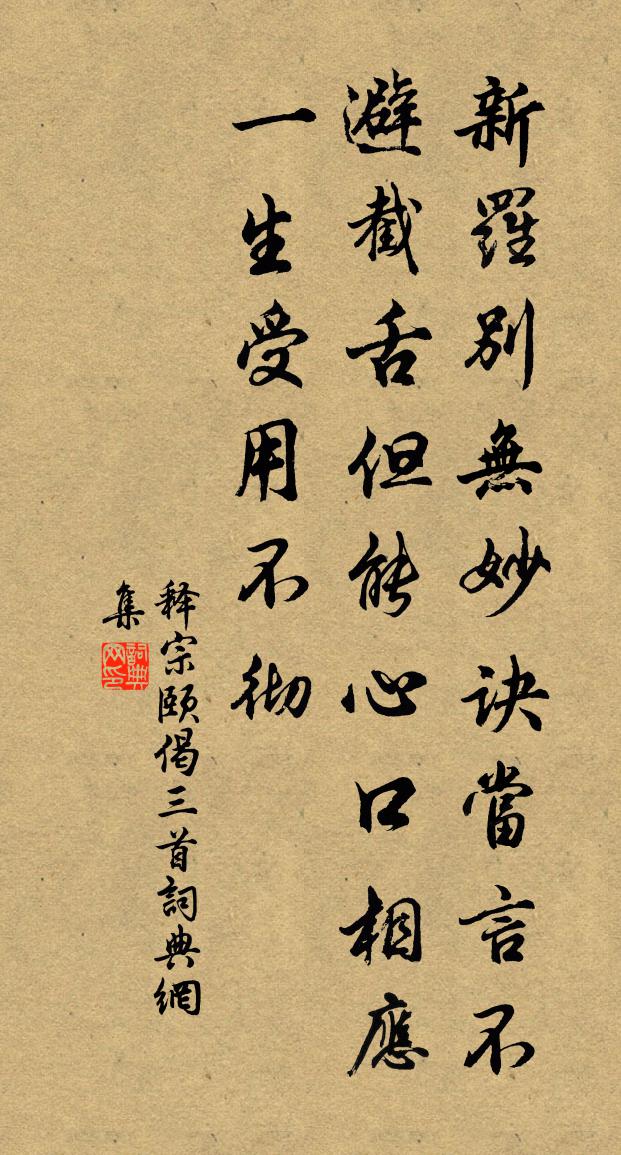 新羅別無妙訣當言不
避截舌但能心口相應
一生受用不徹
释宗颐偈三首詞典網
集
詞典
网印